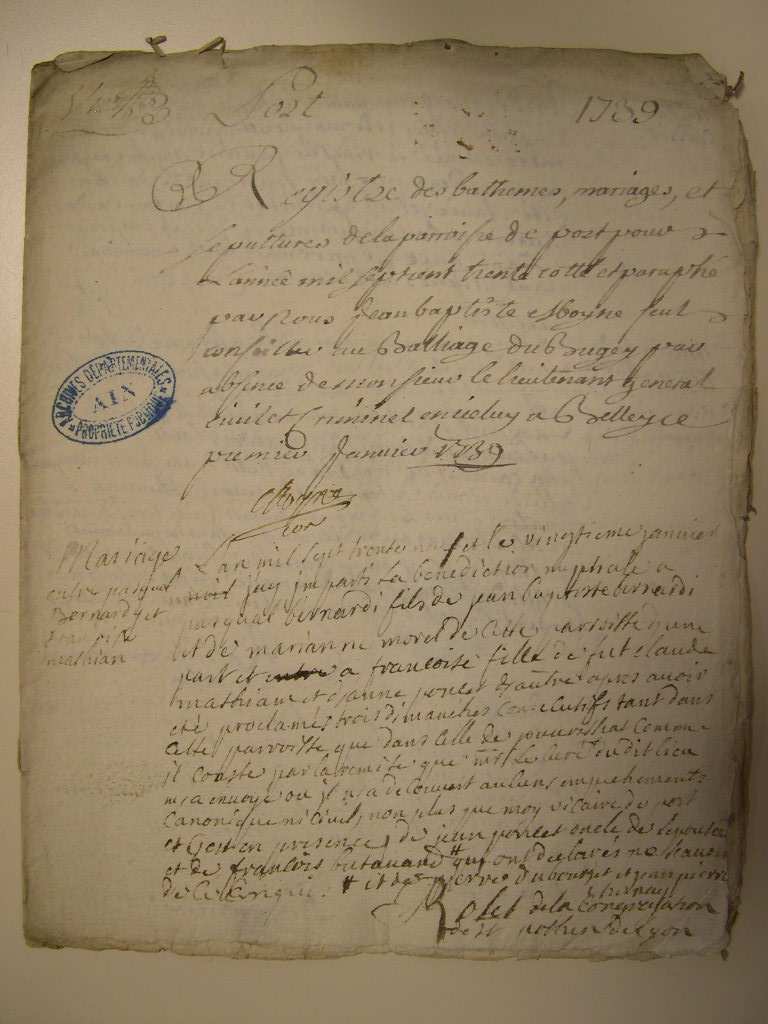 Port 1739
Registre des bathemes, mariages, et
sepultures de la parroisse de port pour
l'année mil sept cent trente cotté et paraphé
par Nous Jean baptiste Moyne seul
conseiller au Balliage du Bugey par
absence de monsieur le lieutenant general
civil et Criminel en iceluy a Belley ce
premier Janvier 1739
Moyne
ARCHIVES DÉPARTEMENTALES
AIN
PROPRIÉTÉ PUBLIQUE
Mariage
entre pasqual
Bernardy et
françoise
mathian
L'an mil sept trente neuf et le vingtieme janvier
jay imparti la benediction nuptiale a
pasqual bernardi fils de jean baptiste bernardi
et de marianne morel de cette parroisse d'une
part et a francoise fille de fut claude
mathian et jeanne poncet d'autre apres avoir
eté proclamés trois dimanches consecutifs tant dans
cette parroisse que dans celle de comme
il conste par la remise que mr le curé du dit lieu
m'a envoyé ou il n'a decouvert aucuns empechements
canonique ni civil, non plus que moy vicaire de port
et c'est en presence de jean poncet oncle de l'epouse
et de francois qui ont declarés ne scavoir
de ce enquis. # et de pierre dubourget et jean pierre
Rolet de la Congregation
de st pothin de Lyon